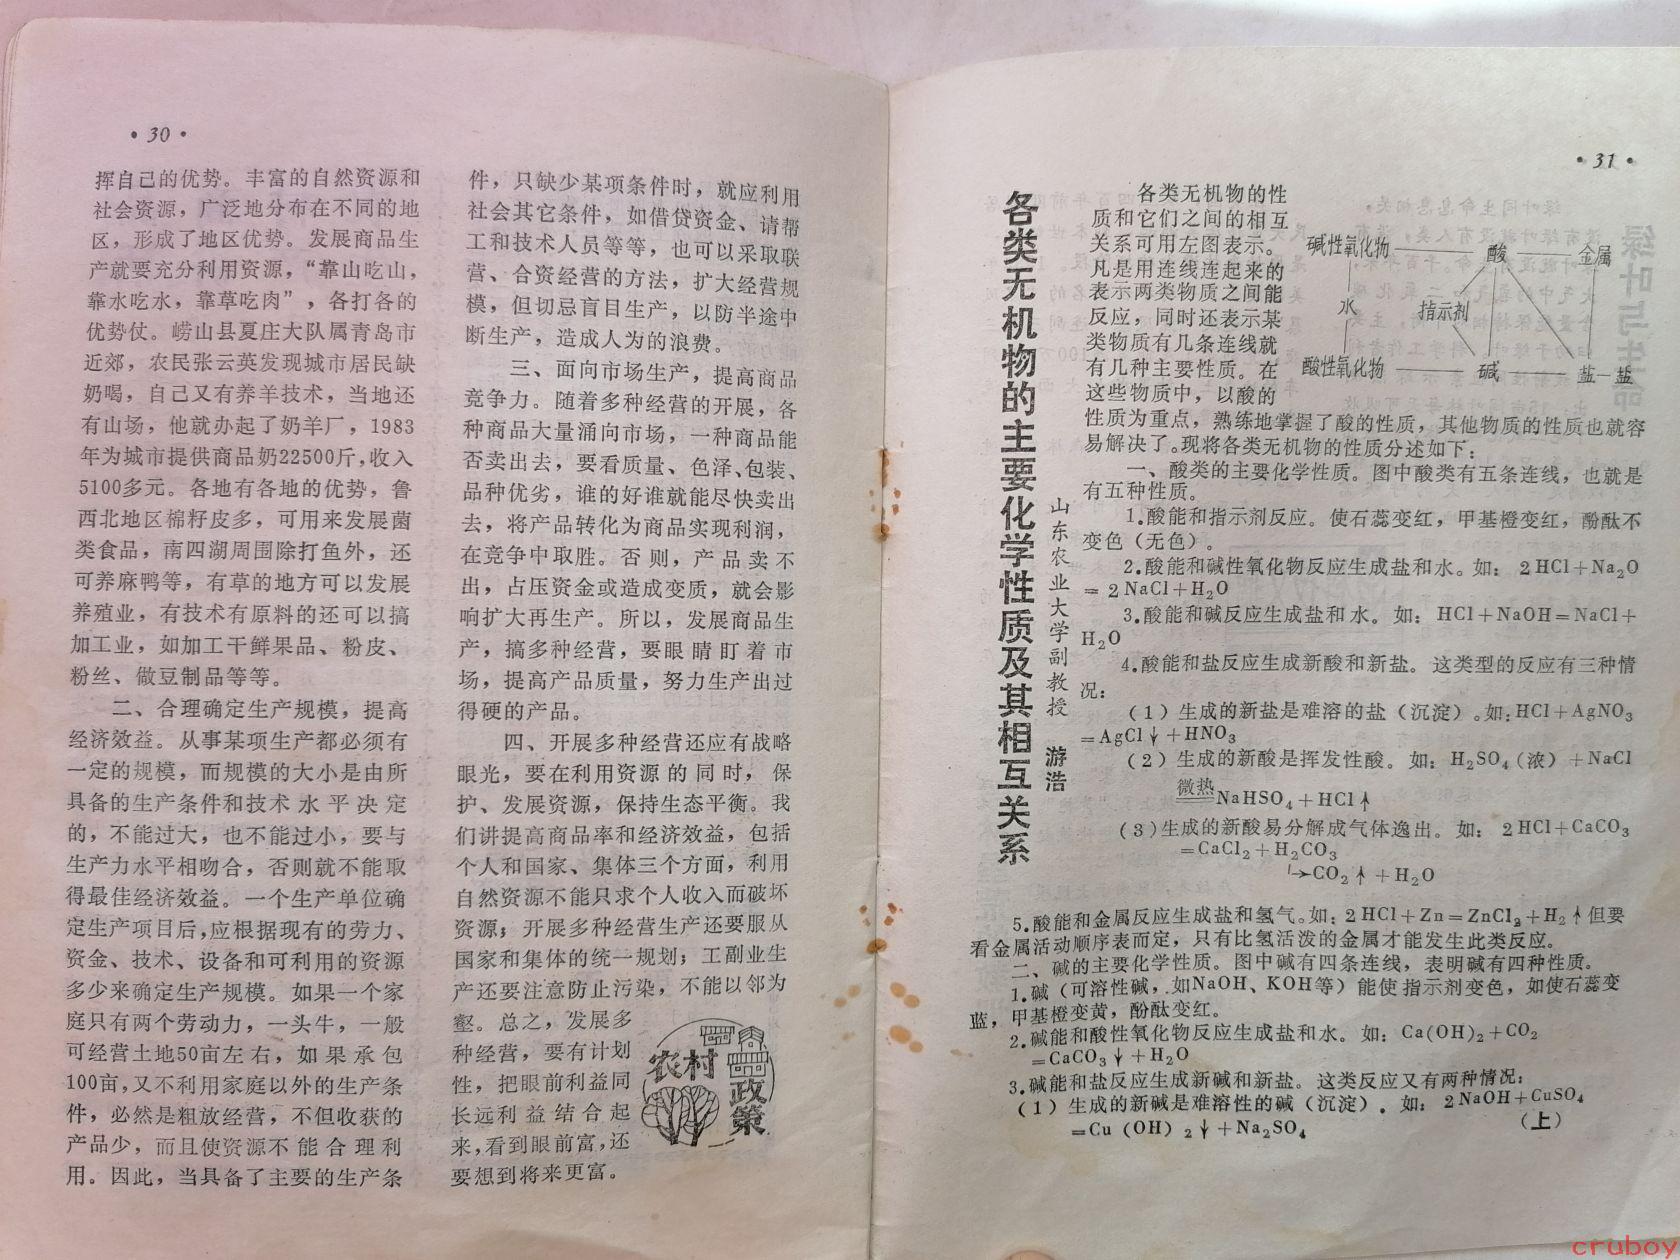 • 30 •
挥自己的优势。丰富的自然资源和
社会资源，广泛地分布在不同的地
区，形成了地区优势。发展商品生
产就要充分利用资源，“靠山吃山，
靠水吃水，靠草吃肉”，各打各的
优势仗。崂山县夏庄大队属青岛市
近郊，农民张云英发现城市居民缺
奶喝，自己又有养羊技术，当地还
有山场，他就办起了奶羊厂，1983
年为城市提供商品奶22500斤，收入
5100多元。各地有各地的优势，鲁
西北地区棉籽皮多，可用来发展菌
类食品，南四湖周围除打鱼外，还
可养麻鸭等，有草的地方可以发展
养殖业，有技术有原料的还可以搞
加工业，如加工干鲜果品、粉皮、
粉丝、做豆制品等等。
二、合理确定生产规模，提高
经济效益。从事某项生产都必须有
一定的规模，而规模的大小是由所
具备的生产条件和技术水平决定
的，不能过大，也不能过小，要与
生产力水平相吻合，否则就不能取
得最佳经济效益。一个生产单位确
定生产项目后，应根据现有的劳力、
资金、技术、设备和可利用的资源
多少来确定生产规模。如果一个家
庭只有两个劳动力，一头牛，一般
可经营土地50亩左右，如果承包
100亩，又不利用家庭以外的生产条
件，必然是粗放经营，不但收获的
产品少，而且使资源不能合理利
用。因此，当具备了主要的生产条
件，只缺少某项条件时，就应利用
社会其它条件，如借贷资金、请帮
工和技术人员等等，也可以采取联
营、合资经营的方法，扩大经营规
模，但切忌盲目生产，以防半途中
断生产，造成人为的浪费。
三、面向市场生产，提高商品
竞争力。随着多种经营的开展，各
种商品大量涌向市场，一种商品能
否卖出去，要看质量、色泽、包装、
品种优劣，谁的好谁就能尽快卖出
去，将产品转化为商品实现利润，
在竞争中取胜。否则，产品卖不
出，占压资金或造成变质，就会影
响扩大再生产。所以，发展商品生
产，搞多种经营，要眼睛盯着市
场，提高产品质量，努力生产出过
得硬的产品。
四、开展多种经营还应有战略
眼光，要在利用资源的同时，保
护、发展资源，保持生态平衡。我
们讲提高商品率和经济效益，包括
个人和国家、集体三个方面，利用
自然资源不能只求个人收入而破坏
资源；开展多种经营生产还要服从
国家和集体的统一规划；工副业生
产还要注意防止污染，不能以邻为
壑。总之，发展多
种经营，要有计划
性，把眼前利益同
长远利益结合起
来，看到眼前富，还
要想到将来更富。
农村
政策
• 31 •
各类无机物的主要化学性质及其相互关系
山东农业大学副教授 游浩
各类无机物的性
质和它们之间的相互
关系可用左图表示。
凡是用连线连起来的
表示两类物质之间能
反应，同时还表示某
类物质有几条连线就
有几种主要性质。在
这些物质中，以酸的
碱性氧化物 酸 金属
水 指示剂
酸性氧化物 碱 盐—盐
性质为重点，熟练地掌握了酸的性质，其他物质的性质也就容
易解决了。现将各类无机物的性质分述如下：
一、酸类的主要化学性质。图中酸类有五条连线，也就是
有五种性质。
1.酸能和指示剂反应。使石蕊变红，甲基橙变红，酚酞不
变色（无色）。
2.酸能和碱性氧化物反应生成盐和水。如：2HCl+Na₂O
=2NaCl+H₂O
3.酸能和碱反应生成盐和水。如：HCl+NaOH=NaCl+
H₂O
4.酸能和盐反应生成新酸和新盐。这类型的反应有三种情
况：
（1）生成的新盐是难溶的盐（沉淀）。如：HCl+AgNO₃
=AgCl↓+HNO₃
（2）生成的新酸是挥发性酸。如：H₂SO₄（浓）+NaCl
微热
NaHSO₄+HCl↑
（3）生成的新酸易分解成气体逸出。如：2HCl+CaCO₃
=CaCl₂+H₂CO₃
↳CO₂↑+H₂O
5.酸能和金属反应生成盐和氢气。如：2HCl+Zn=ZnCl₂+H₂↑但要
看金属活动顺序表而定，只有比氢活泼的金属才能发生此类反应。
二、碱的主要化学性质。图中碱有四条连线，表明碱有四种性质。
1.碱（可溶性碱，如NaOH、KOH等）能使指示剂变色，如使石蕊变
蓝，甲基橙变黄，酚酞变红。
2.碱能和酸性氧化物反应生成盐和水。如：Ca(OH)₂+CO₂
=CaCO₃↓+H₂O
3.碱能和盐反应生成新碱和新盐。这类反应又有两种情况：
（1）生成的新碱是难溶性的碱（沉淀）。如：2NaOH+CuSO₄
=Cu(OH)₂↓+Na₂SO₄
（上）
cruboy